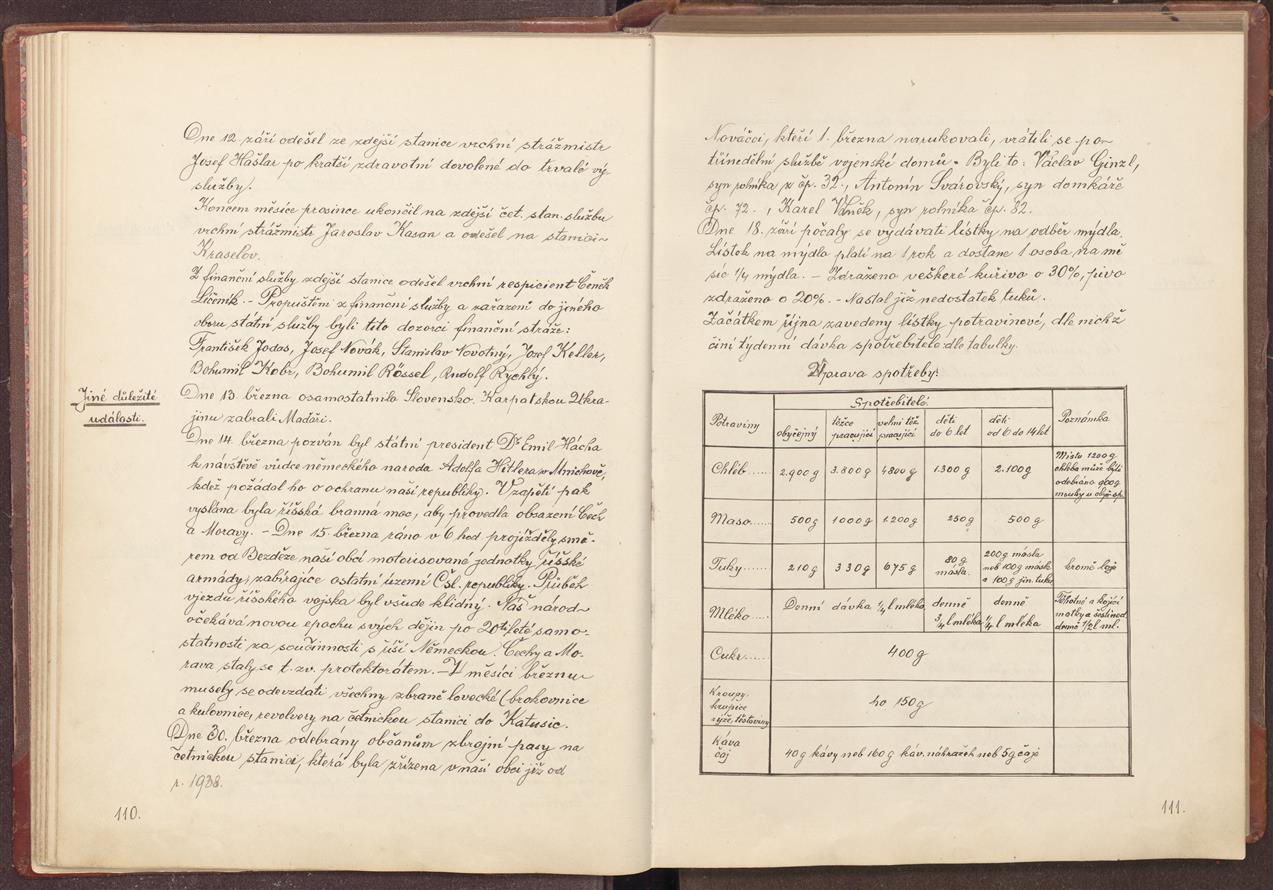 Dne 12. září odešel ze zdejší stanice vrchní strážmistr
Josef Hašlar po kratší zdravotní dovolené do trvalé vý-
služby.
Koncem měsíce prosince ukončil na zdejší čet. stan. službu
vrchní strážmistr Jaroslav Kasan a odešel na stanici
Kraselov.
Z finanční služby zdejší stanice odešel vrchní respicient Čeněk
Líčeník. - Propuštěni z finanční služby a zařazeni do jiného
oboru státní služby byli tito dozorci finanční stráže:
František Jodas, Josef Novák, Stanislav Novotný, Josef Keller,
Bohumil Kobr, Bohumil Rössel, Rudolf Rychlý.
Jiné důležité
události.
Dne 13. března osamostatnilo Slovensko. Karpatskou Ukra-
jinu zabrali Maďaři.
Dne 14. března pozván byl státní president Dr Emil Hácha
k návštěvě vůdce německého národa Adolfa Hitlera v Mnichově,
kdež požádal ho o ochranu naší republiky. Vzápětí pak
vyslána byla říšská branná moc, aby provedla obsazení Čech
a Moravy. - Dne 15. března ráno v 6 hod projížděly smě-
rem od Bezděze naší obcí motorisované jednotky říšské
armády, zabírajíce ostatní území Čsl. republiky. Průběh
vjezdu říšského vojska byl všude klidný. Náš národ
očekává novou epochu svých dějin po 20tileté samo-
statnosti za součinnosti s říší Německou. Čechy a Mo-
rava staly se t. zv. protektorátem. - V měsíci březnu
musely se odevzdati všechny zbraně lovecké (brokovnice
a kulovnice, revolvery na četnickou stanici do Katusic.
Dne 30. března odebrány občanům zbrojní pasy na
četnickou stanici, která byla zřízena v naší obci již od
r. 1938.
110.
Nováčci, kteří 1. března narukovali, vrátili se po
třínedělní službě vojenské domů. Byli to: Václav Ginzl,
syn rolníka z čp. 32., Antonín Svárovský, syn domkáře
čp. 72., Karel Vaněk, syn rolníka čp. 82.
Dne 18. září počaly se vydávati lístky na odběr mýdla.
Lístek na mýdlo platí na 1 rok a dostane 1 osoba na mě
síc 1/4 mýdla. - Zdraženo veškeré kuřivo o 30%, pivo
zdraženo o 20%. - Nastal již nedostatek tuků.
Začátkem října zavedeny lístky potravinové, dle nichž
činí týdenní dávka spotřebitele dle tabulky.
Úprava spotřeby:
Potraviny Spotřebitelé: Poznámka
obyčejný těžce pracující velmi těž. pracující děti do 6 let děti od 6 do 14 let
Chléb..... 2.900 g 3.800 g 4800 g 1300 g 2.100 g Místo 1200 g chleba může býti odebráno 900 g mouky u obyč. sp.
Maso..... 500 g 1000 g 1200 g 250 g 500 g
Tuky..... 210 g 330 g 675 g 80 g másla. 200 g másla neb 100 g másla a 100 g jin. tuku kromě loje
Mléko..... Denní dávka 1/4 l mléka denně 3/4 l mléka denně 1/4 l mléka Těhotné a kojící matky denně 1/2 l ml.
Cukr..... 400 g
Kroupy krupice rýže, těstoviny po 150 g
Káva čaj 40 g kávy neb 160 g káv. náhražek neb 5 g čaje
111.